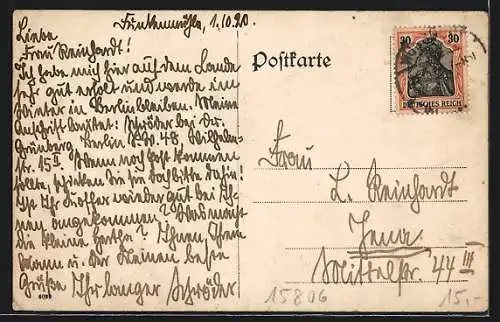 Finkenmühle, 1.10.20.
Liebe
Frau Reinhardt!
Ich habe mich hier auf dem Lande
sehr gut erholt und werde im
Winter in Berlin bleiben. Meine
Anschrift lautet: Schröder bei Dr.
Grünberg, Berlin S.W. 48, Wilhelm-
str. 15 II. Wenn noch Post kommen
sollte, schicken Sie sie doch bitte dahin!
Ist Ihr Koffer wieder gut bei Ih-
nen angekommen? Was macht
die kleine Hertha? Ihnen, Ihrem
Mann u. der Kleinen beste
Grüße Ihr Schröder
Postkarte
30 30
DEUTSCHES REICH
Frau
L. Reinhardt
Jena
Mittelstr. 44 III
15806
15,-